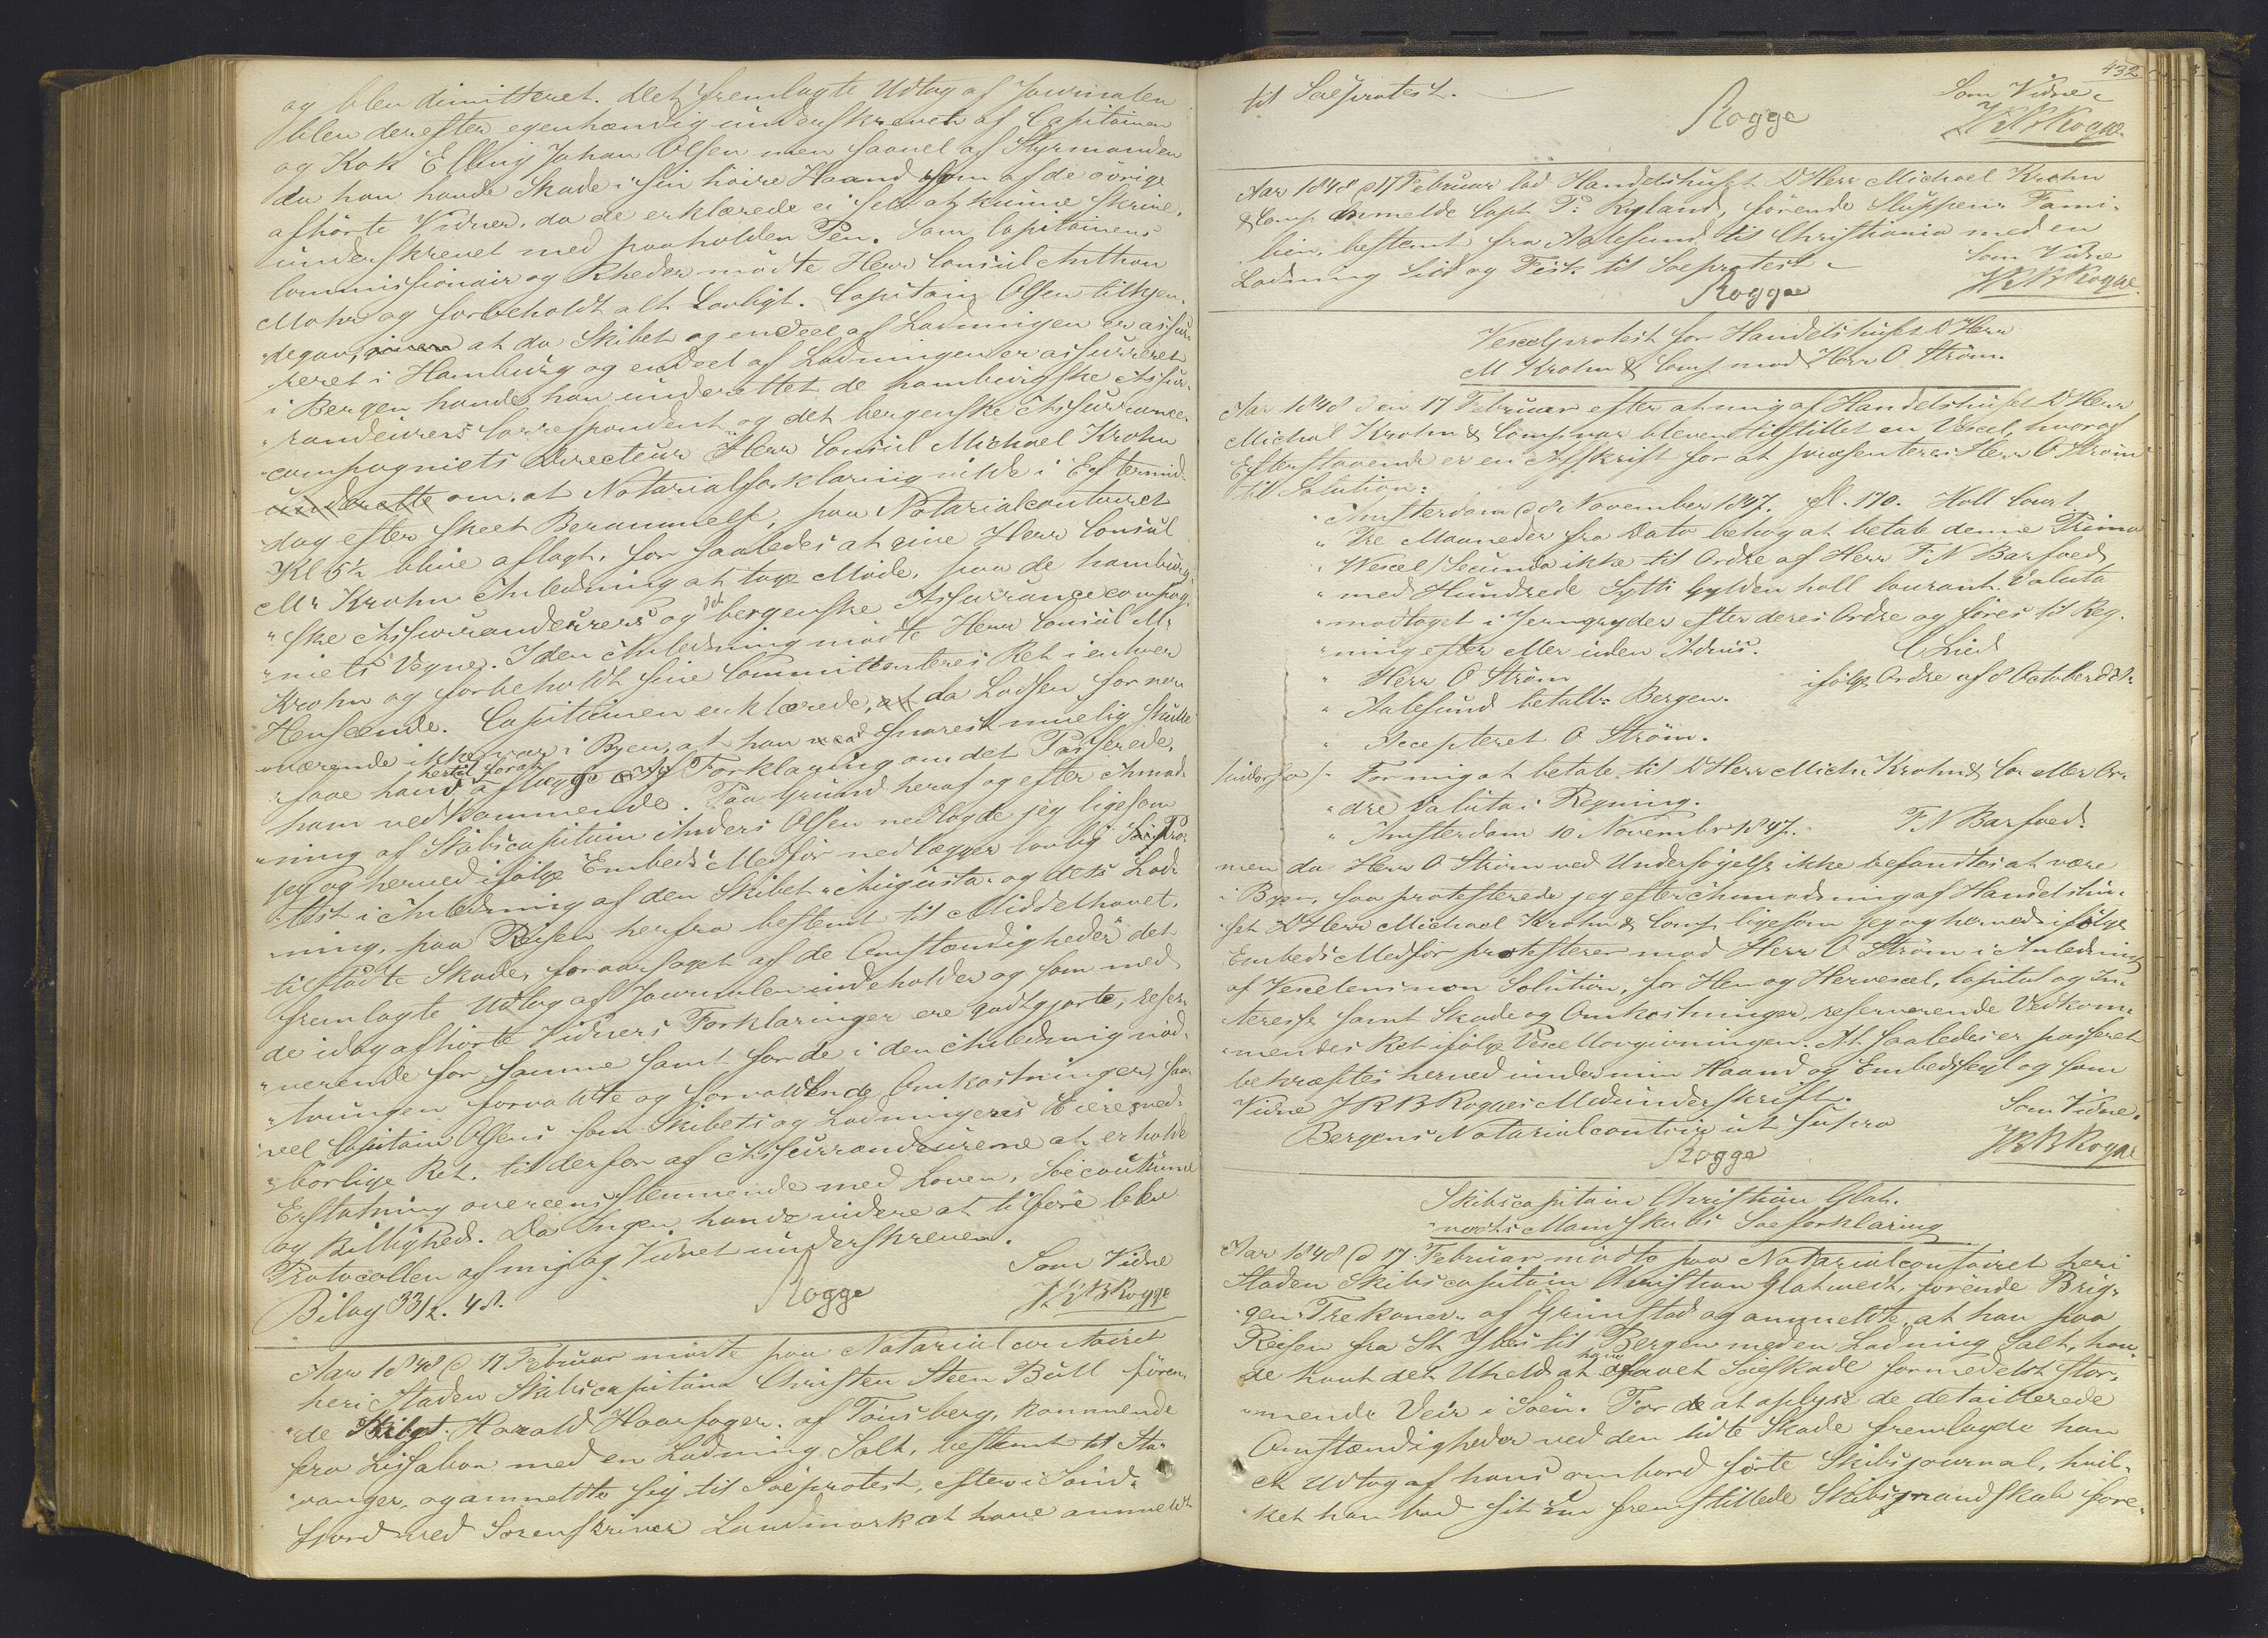 og blev dimitteret. Det fremlagte Udtog af Journalen
blev derefter egenhændig underskrevet af Capitainen
og Kok Elling Johan Olsen men saavel af Styrmanden
da han havde Skade i sin høire Haand som af de øvrige
afhørte Vidner, da de erklærede ei selv at kunne skrive,
underskrevet med paaholden Pen. Som Capitainens
Commissionair og Rheder mødte Herr Consul Anthon
Mohr og forbeholdt alt Lovligt. Capitain Olsen tilkjen-
degav, at da Skibet og endeel af Ladningen er assur-
reret i Hamburg og endeel af Ladningen er assurreret
i Bergen havde han underettet de hamburgske Assur-
randeurers Correspondent og det bergenske Assurrance-
compagniets Directeur Herr Consul Michael Krohn
underette om, at Notarialforklaring vilde i Eftermid-
dag efter skeet Berammelse, paa Notarialcontoiret
Kl 5½ blive aflagt, for saaledes at give Herr Consul
Mr Krohn Anledning at tage Møde, paa de hamburg-
ske Assurrandeurers og det bergenske Assurrancecompag-
niets Vegne. I den Anledning mødte Herr Consul Mr
Krohn og forbeholdt sine Committenteres Ret i enhver
Henseende. Capitainen erklærede, at da Lodsen for nær-
værende ikke var i Byen, at han snarest muelig skulle
faae ham hertil for at aflægge Forklaring om det Passerede,
ham vedkommende. Paa Grund heraf og efter Anmod-
ning af Skibscapitain Anders Olsen nedlagde jeg ligesom
jeg og herved ifølge Embeds Medfør nedlægger lovlig Søepro-
test i Anledning af den Skibet "Augusta" og dets Lad-
ning, paa Reisen herfra bestemt til Middelhavet,
tilstødte Skade, foraarsaget af de Omstændigheder det
fremlagte Udtog af Journalen indeholder og som med
de idag afhørte Vidners Forklaringer ere godtgjorte, reser-
verende for samme samt for de i den Anledning nød-
tvungen forvoldte og forvoldende Omkostninger, saa-
vel Capitain Olsens som Skibets og Ladningens Eieres ved-
børlige Ret, til derfor af Assurrandeurerne at erholde
Erstatning overeensstemmende med Loven, Søecoutume
og Billighed. Da Ingen havde videre at tilføre blev
Protocollen af mig og Vidnet underskreven.
Bilag 33/2. 48. Rogge Som Vidne
JRBRogge
Aar 1848 d 17 Februar mødte paa Notarialcontoiret
heri Staden Skibscapitain Christen Steen Bull føren-
de Skibet Harald Haarfager, af Tønsberg, kommende
fra Lissabon med en Ladning Salt, bestemt til Sta-
vanger, og anmeldte sig til Søeprotest, efter i Sønd-
fjord ved Sorenskriver Landmark at have anmeldt
432
til Søeprotest.
Rogge Som Vidne
JRBRogge
Aar 1848 d 17 Februar lod Handelshuset DHerr Michael Krohn
& Comp anmelde Capt P. Ryland, førende Sluppen Fami-
lien, bestemt fra Aalesund til Christiania med en
Ladning Sild og Fisk til Søeprotest
Rogge Som Vidne
JRBRogge
Vexelprotest for Handelshuset DHerr
M Krohn & Comp mod Herr O Strøm.
Aar 1848 den 17 Februar efter at mig af Handelshuset DHerr
Michael Krohn & Comp var bleven tilstillet en Vexel, hvoraf
Efterstaaende er en Afskrift for at præsenteres Herr O Strøm
til Solution:
" Amsterdam d 8 November 1847. fl. 170. Holl Court
" Tre Maaneder fra Dato behag at betale denne Prima
" Wexel / Secunda ikke til Ordre af Herr F N Barfoed
" med Hundrede Sytti Gylden holl Courant. Valuta
" modtaget i Jerngryder efter deres Ordre og føres til Reg-
" ning efter eller uden Advis. C Lied
" Herr O Strøm ifølge Ordre af 8 October
" Aalesund betalb: Bergen.
" Accepteret O Strøm.
For mig at betale til DHerr Mich. Krohn & Co eller Or-
" dre Valuta i Regning.
" Amsterdam 10 November 1847. F N Barfoed.
men da Herr O Strøm ved Undersøgelse ikke befandtes at være
i Byen, saa protesterede jeg efter Anmodning af Handelshu-
set DHerr Michael Krohn & Comp ligesom jeg og herved ifølge
Embeds Medfør protesterer mod Herr O Strøm i Anledning
af Vexelens non Solution, for Hen og Hervexel, Capital og In-
teresse samt Skade og Omkostninger, reserverende Vedkom-
mendes Ret ifølge Vexellovgivningen. At saaledes er passeret
bekræftes herved under min Haand og Embedsseyl og som
Vidne JRBRogges Medunderskrift.
Bergens Notarialcontoir ut supra Som Vidne.
Rogge JRBRogge
Skibscapitain Christian Glat-
vedts Mandskabs Søeforklaring
Aar 1848 d 17 Februar mødte paa Notarialcontoiret heri
Staden Skibscapitain Christian Glatvedt, førende Brig-
gen Trekoner, af Grimstad og anmeldte, at han paa
Reisen fra St Ybes til Bergen med en Ladning Salt, hav-
de havt det Uheld at have faaet Søeskade formedelst stor-
mende Veir i Søen. For at oplyse de detaillerede
Omstændigheder ved den lidte Skade fremlagde han
et Udtog af hans ombord førte Skibsjournal, hvil-
ket han bad sit fremstillede Skibsmandskab fore-